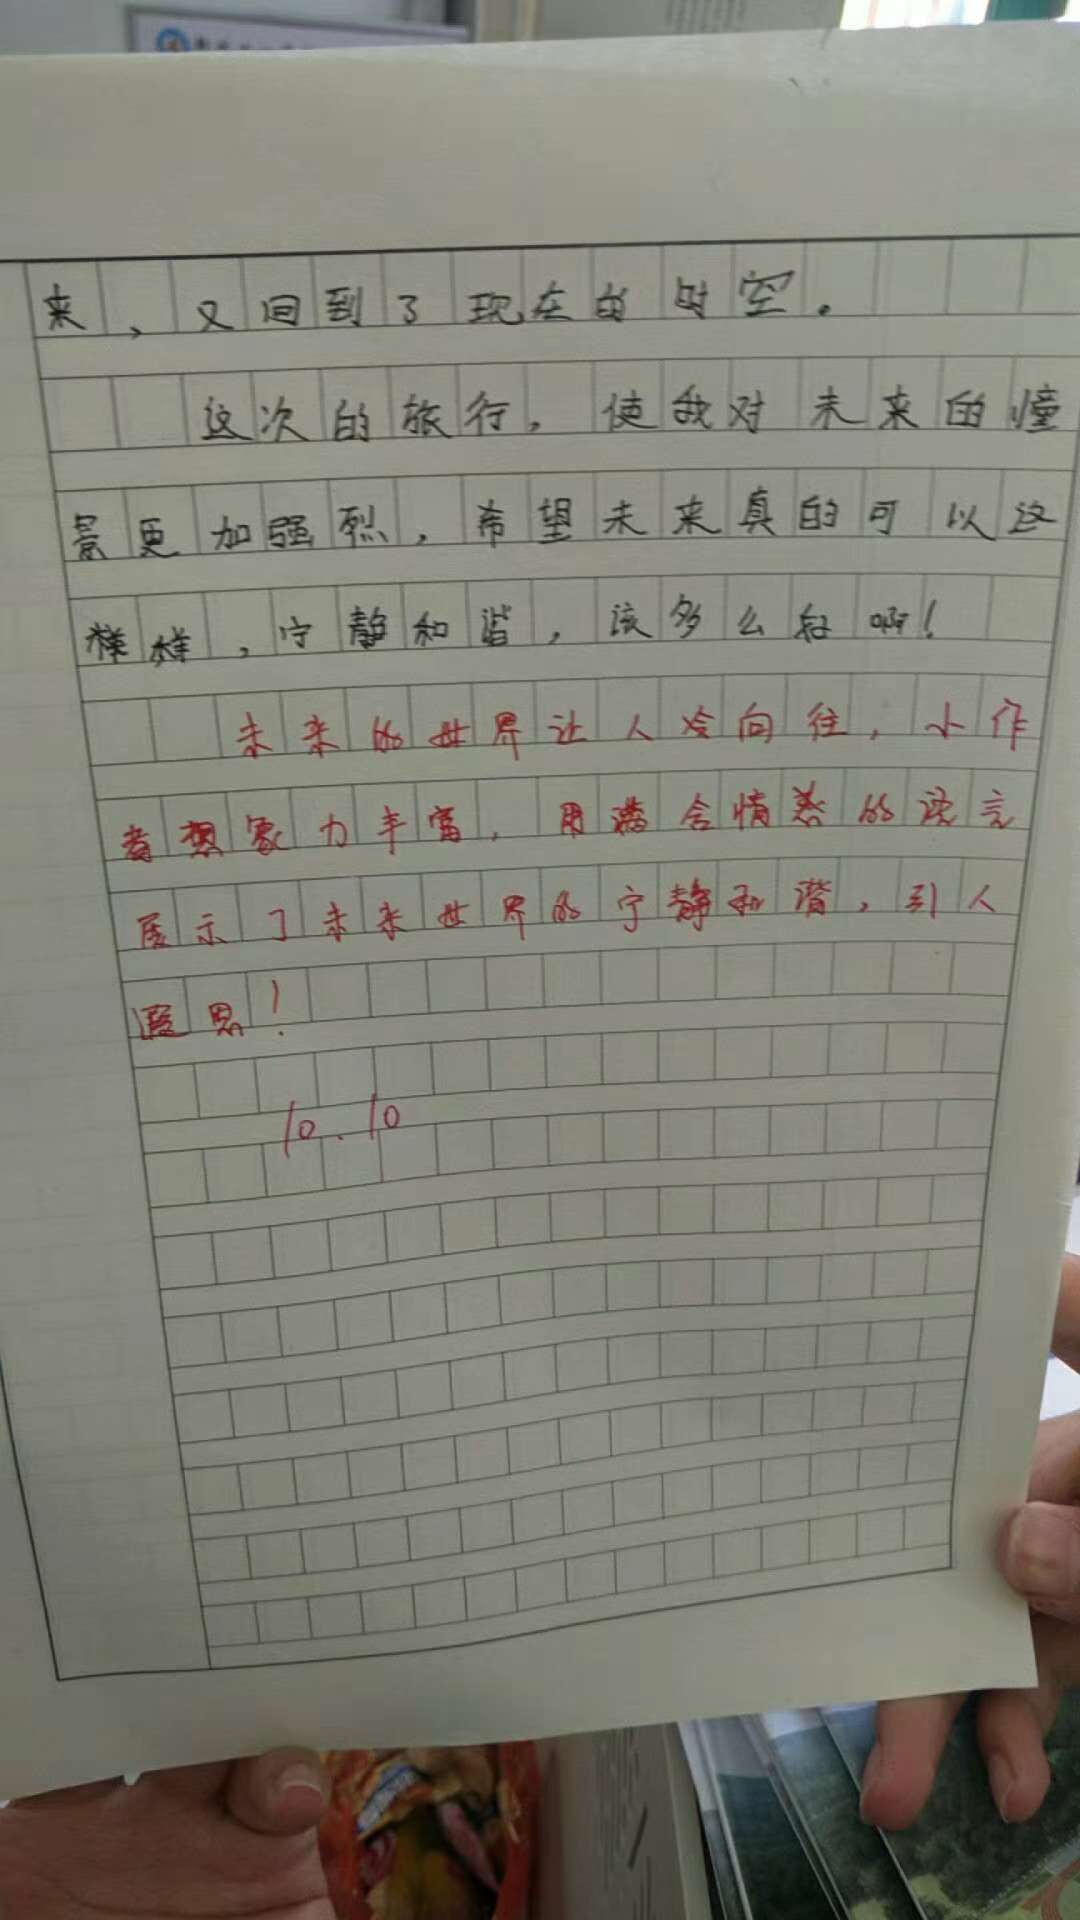 来，又回到了现在的时空。
这次的旅行，使我对未来的憧
景更加强烈，希望未来真的可以这
样样，宁静和谐，该多么好啊！
未来的世界让人冷向往，小作
者想象力丰富，用满含情感的语言
展示了未来世界的宁静和谐，引人
遐思！
10.10